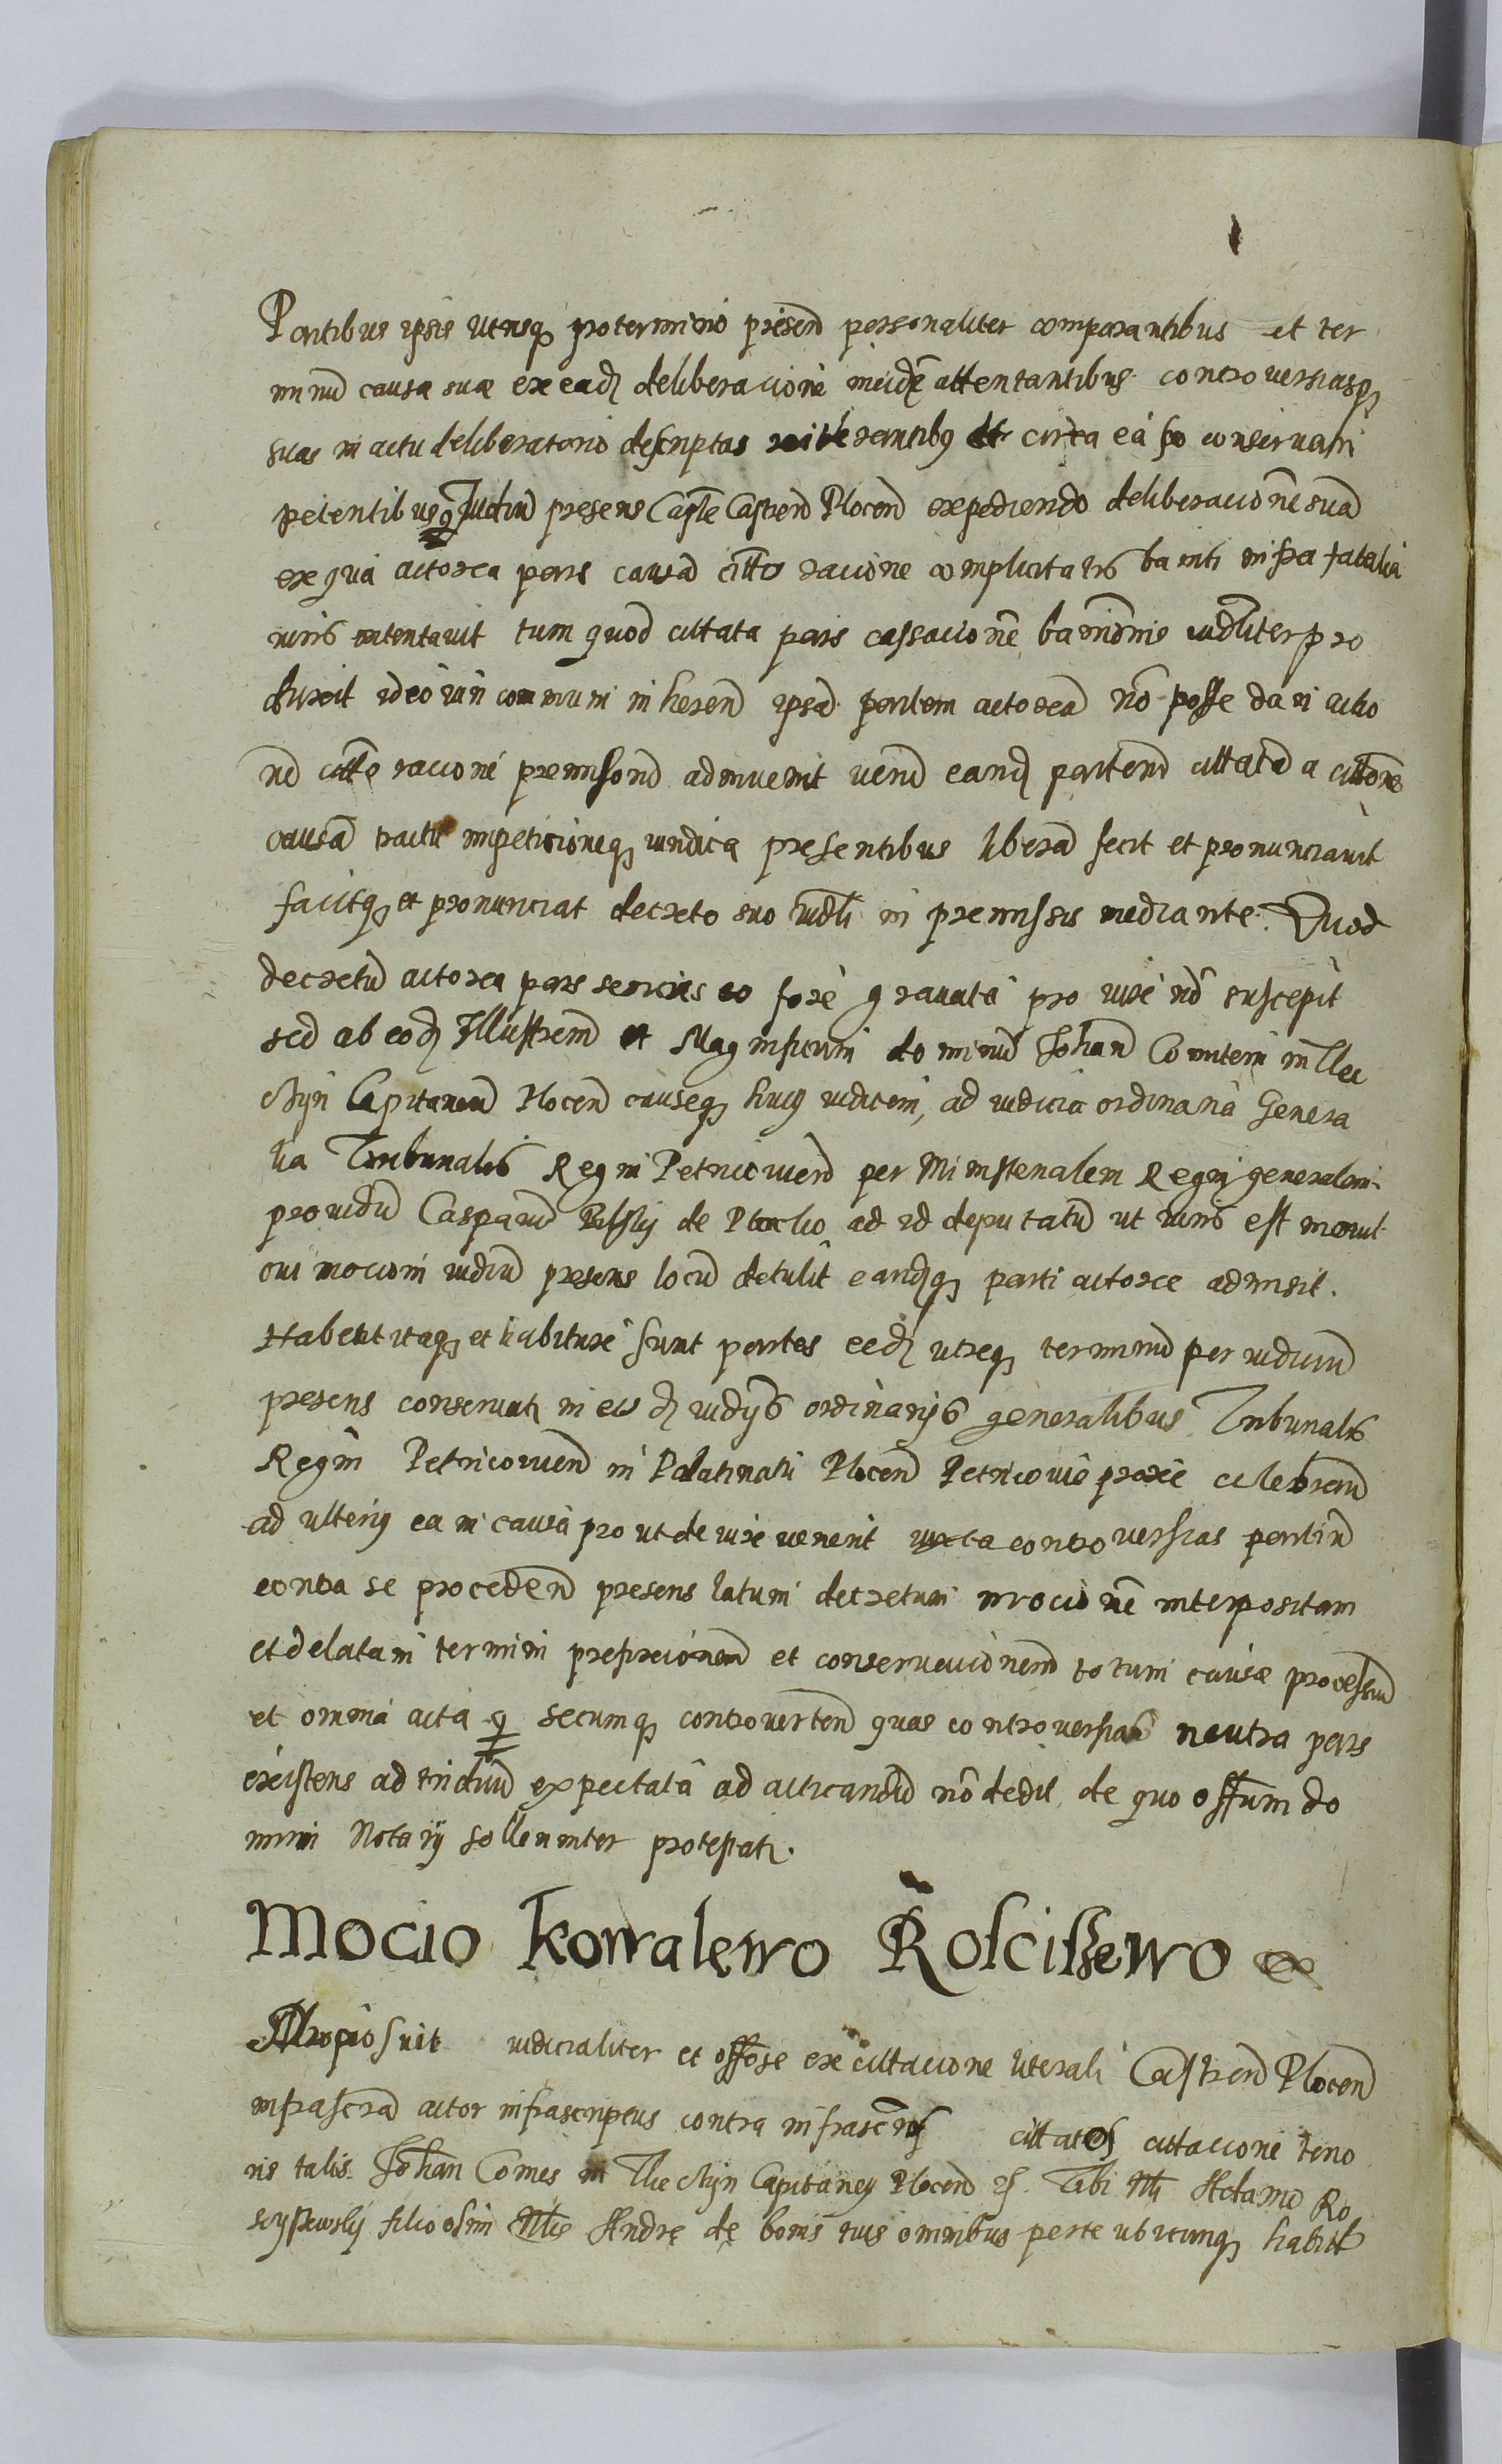 Partibus ipsis utrisq pro termino presen personaliter comparantibus et ter
minu causa sua ex ead deliberacione incide attentantibus controversiasq
suas in actu deliberatorio descriptas reiterantibus et circa ea se conservari
petentibus Judiciu presens Castren Plocen expediendo deliberacione sua
ex qua actorea pars causa racione complicitatis banniti infra fatalia
iuris intentavit tum quod cittata pars cassacione bannicionis iudlliter pro
duxit ideo iuri communi inheren ipsa partem actorea no posse dari actio
ne citte racione premissoru adinvenit veru eand partem cittata a cittone
causa tractu impeticioneq iuridica presentibus libera fecit et pronunciavit
facitq et pronunciat decreto suo iudlli in premissis mediante. Quod
decretu actorea pars senciens eo fore gravata pro iure no suscepit
sed ab eod Illustrem et Magnificum dominu Johan Comitem in Tlec
chyn Capitaneu Plocen causeq huius iudicem, ad iudicia ordinaria Genera
lia Tribunalis Regni Petricovien per Ministerialem Regni generalem
providu Casparu de Plocko ad id deputatu ut iuris est movit
cui mocioni iudiciu presens locu detulit eandq parti actoree admisit.
Habent itaq et habiture sunt partes eed utreq terminu per iudiciu
presens conservat in eisd iudiciis ordinariis generalibus Tribunalis
Regni Petricovien in Palatinatu Plocen Petricovie proxie celebran
ad ulterius ea in causa prout de iure venerit iuxta controversias partiu
contra se proceden presens latum decretum mocione interpositam
et delatam termini prefixione et conservacionem totum cause processu
et omnia acta secumq controverten quas controversias neutra pars
existens ad triduu expectata ad acticandu no dedit de quo offium do
mini Notarii sollenniter protestat.
Mocio Kowalewo Rosciszewo
Proposuit iudicialiter et offose ex cittacione literali Castren Plocen
infrascra actor infrascriptus contra infrascr cittatos cittacione teno
ris talis. Johan Comes in Tleczhyn Capitaneus Plocen Tibi Nbli Adamo Ro
scyszewsky filio olim Nblis Andre de bonis tuis omnibus perte ubicunq habit